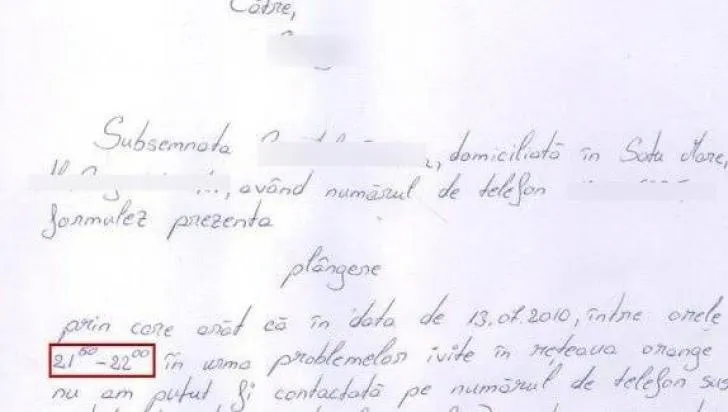 Către,
Subsemnata , domiciliată în Satu Mare,
, având numărul de telefon
formulez prezenta
plângere
prin care arăt că în data de 13.07.2010, între orele
21⁵⁰-22⁰⁰ în urma problemelor ivite în rețeaua orange
nu am putut fi contactată pe numărul de telefon sus